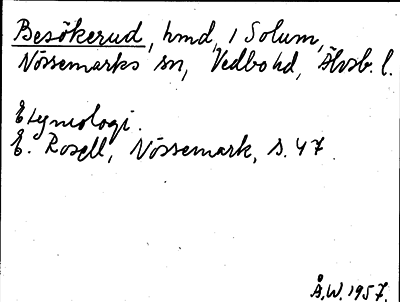 Besökerud, hmd, i Solum,
Nössemarks sn, Vedbo hd, Älvsb. l.
Etymologi.
E. Rosell, Nössemark, s. 47.
Å.W. 1957.